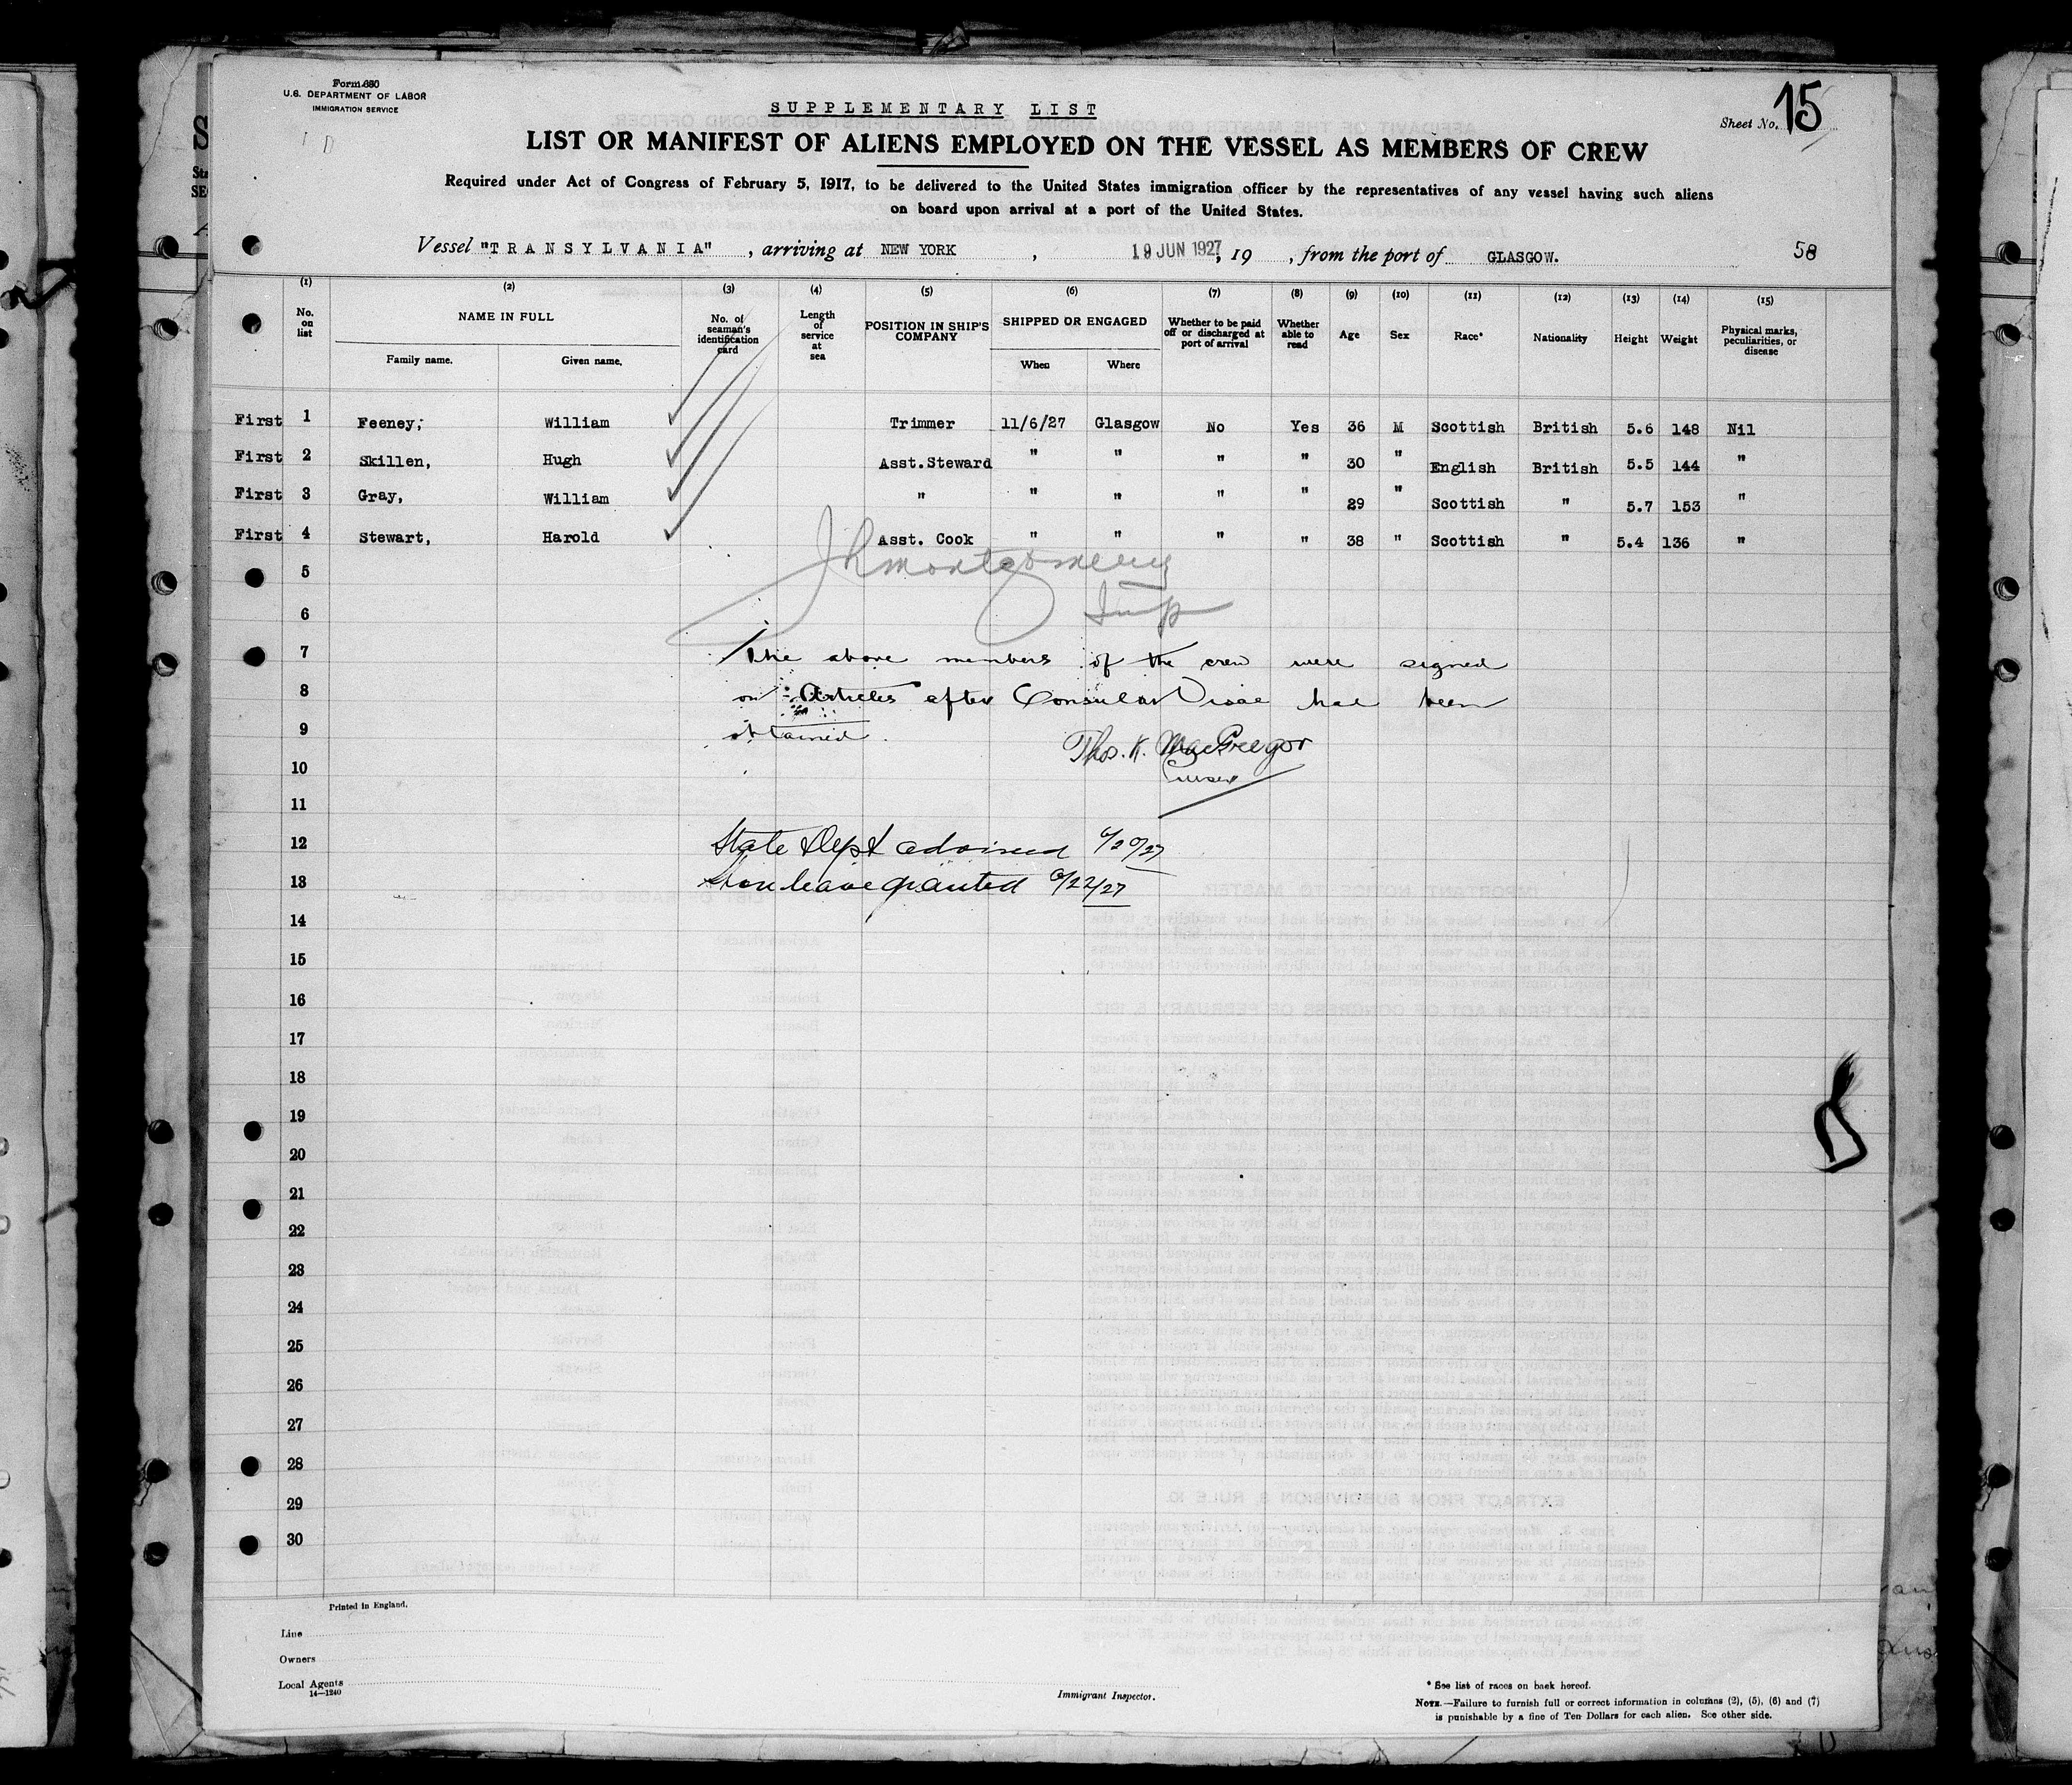 Form 680
U.S. DEPARTMENT OF LABOR
IMMIGRATION SERVICE
SUPPLEMENTARY LIST
Sheet No. 15
LIST OR MANIFEST OF ALIENS EMPLOYED ON THE VESSEL AS MEMBERS OF CREW
Required under Act of Congress of February 5, 1917, to be delivered to the United States immigration officer by the representatives of any vessel having such aliens
on board upon arrival at a port of the United States.
Vessel "TRANSYLVANIA", arriving at NEW YORK, 19 JUN 1927, 19 , from the port of GLASGOW. 58
(1) (2) (3) (4) (5) (6) (7) (8) (9) (10) (11) (12) (13) (14) (15)
No. on list NAME IN FULL Family name. Given name. No. of seaman's identification card Length of service at sea POSITION IN SHIP'S COMPANY SHIPPED OR ENGAGED When Where Whether to be paid off or discharged at port of arrival Whether able to read Age Sex Race* Nationality Height Weight Physical marks, peculiarities, or disease
First 1 Feeney, William Trimmer 11/6/27 Glasgow No Yes 36 M Scottish British 5.6 148 Nil
First 2 Skillen, Hugh Asst.Steward " " " " 30 " English British 5.5 144 "
First 3 Gray, William " " " " " 29 " Scottish " 5.7 153 "
First 4 Stewart, Harold Asst. Cook " " " " 38 " Scottish " 5.4 136 "
5
JRMontgomery
6
Insp
7
The above members of the crew were signed
8
on Articles after Consular Visae had been
9
obtained.
Thos. K. MacGregor
10
Purser
11
12
State Dept advised 6/20/27
13
Shore leave granted 6/22/27
14
15
16
17
18
19
20
21
22
23
24
25
26
27
28
29
30
Printed in England.
Line
Owners
Local Agents
14—1240
Immigrant Inspector.
* See list of races on back hereof.
NOTE.—Failure to furnish full or correct information in columns (2), (5), (6) and (7)
is punishable by a fine of Ten Dollars for each alien. See other side.